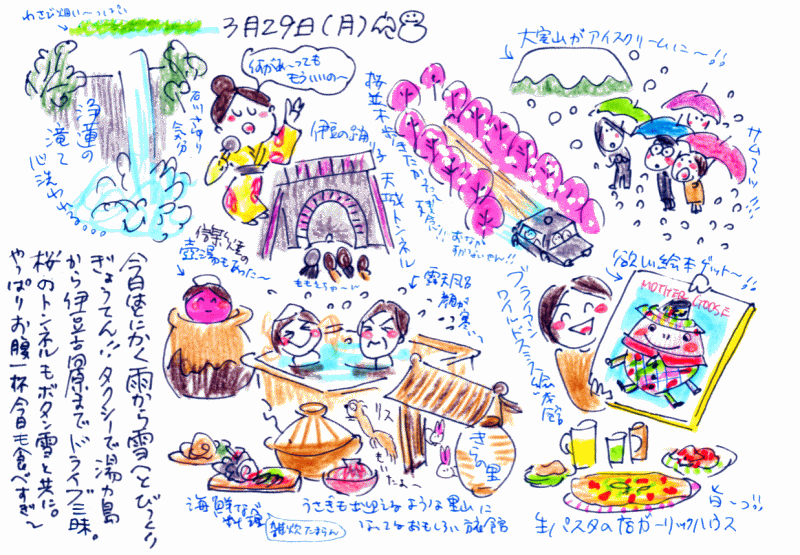 わさび畑い〜っぱい
3月29日(月)
何があ〜っても
もういいの〜
石川さゆり
気分
浄蓮の
滝で
心洗われる…
伊豆の踊り子
天城トンネル
桜並木
残念!!
大室山がアイスクリームに〜!!
サムーッ!!!
信楽焼の
壺湯もあった〜
露天風呂
顔が寒い
ブライアン・
ワイルドスミス絵本館
欲しい絵本ゲット〜!!
MOTHER GOOSE
今日はとにかく雨から雪へとびっくり
ぎょうてん!!タクシーで湯ヶ島
から伊豆高原までドライブ三昧。
桜のトンネルもボタン雪と共に。
やっぱりお腹一杯今日も食べすぎ〜
リス
もいたよ〜
きらの里
海鮮なべ
雑炊たまらん
うさぎも出迎えるような里山に
なってるおもしろい旅館
旨〜っ!!
生パスタの店ガーリックハウス